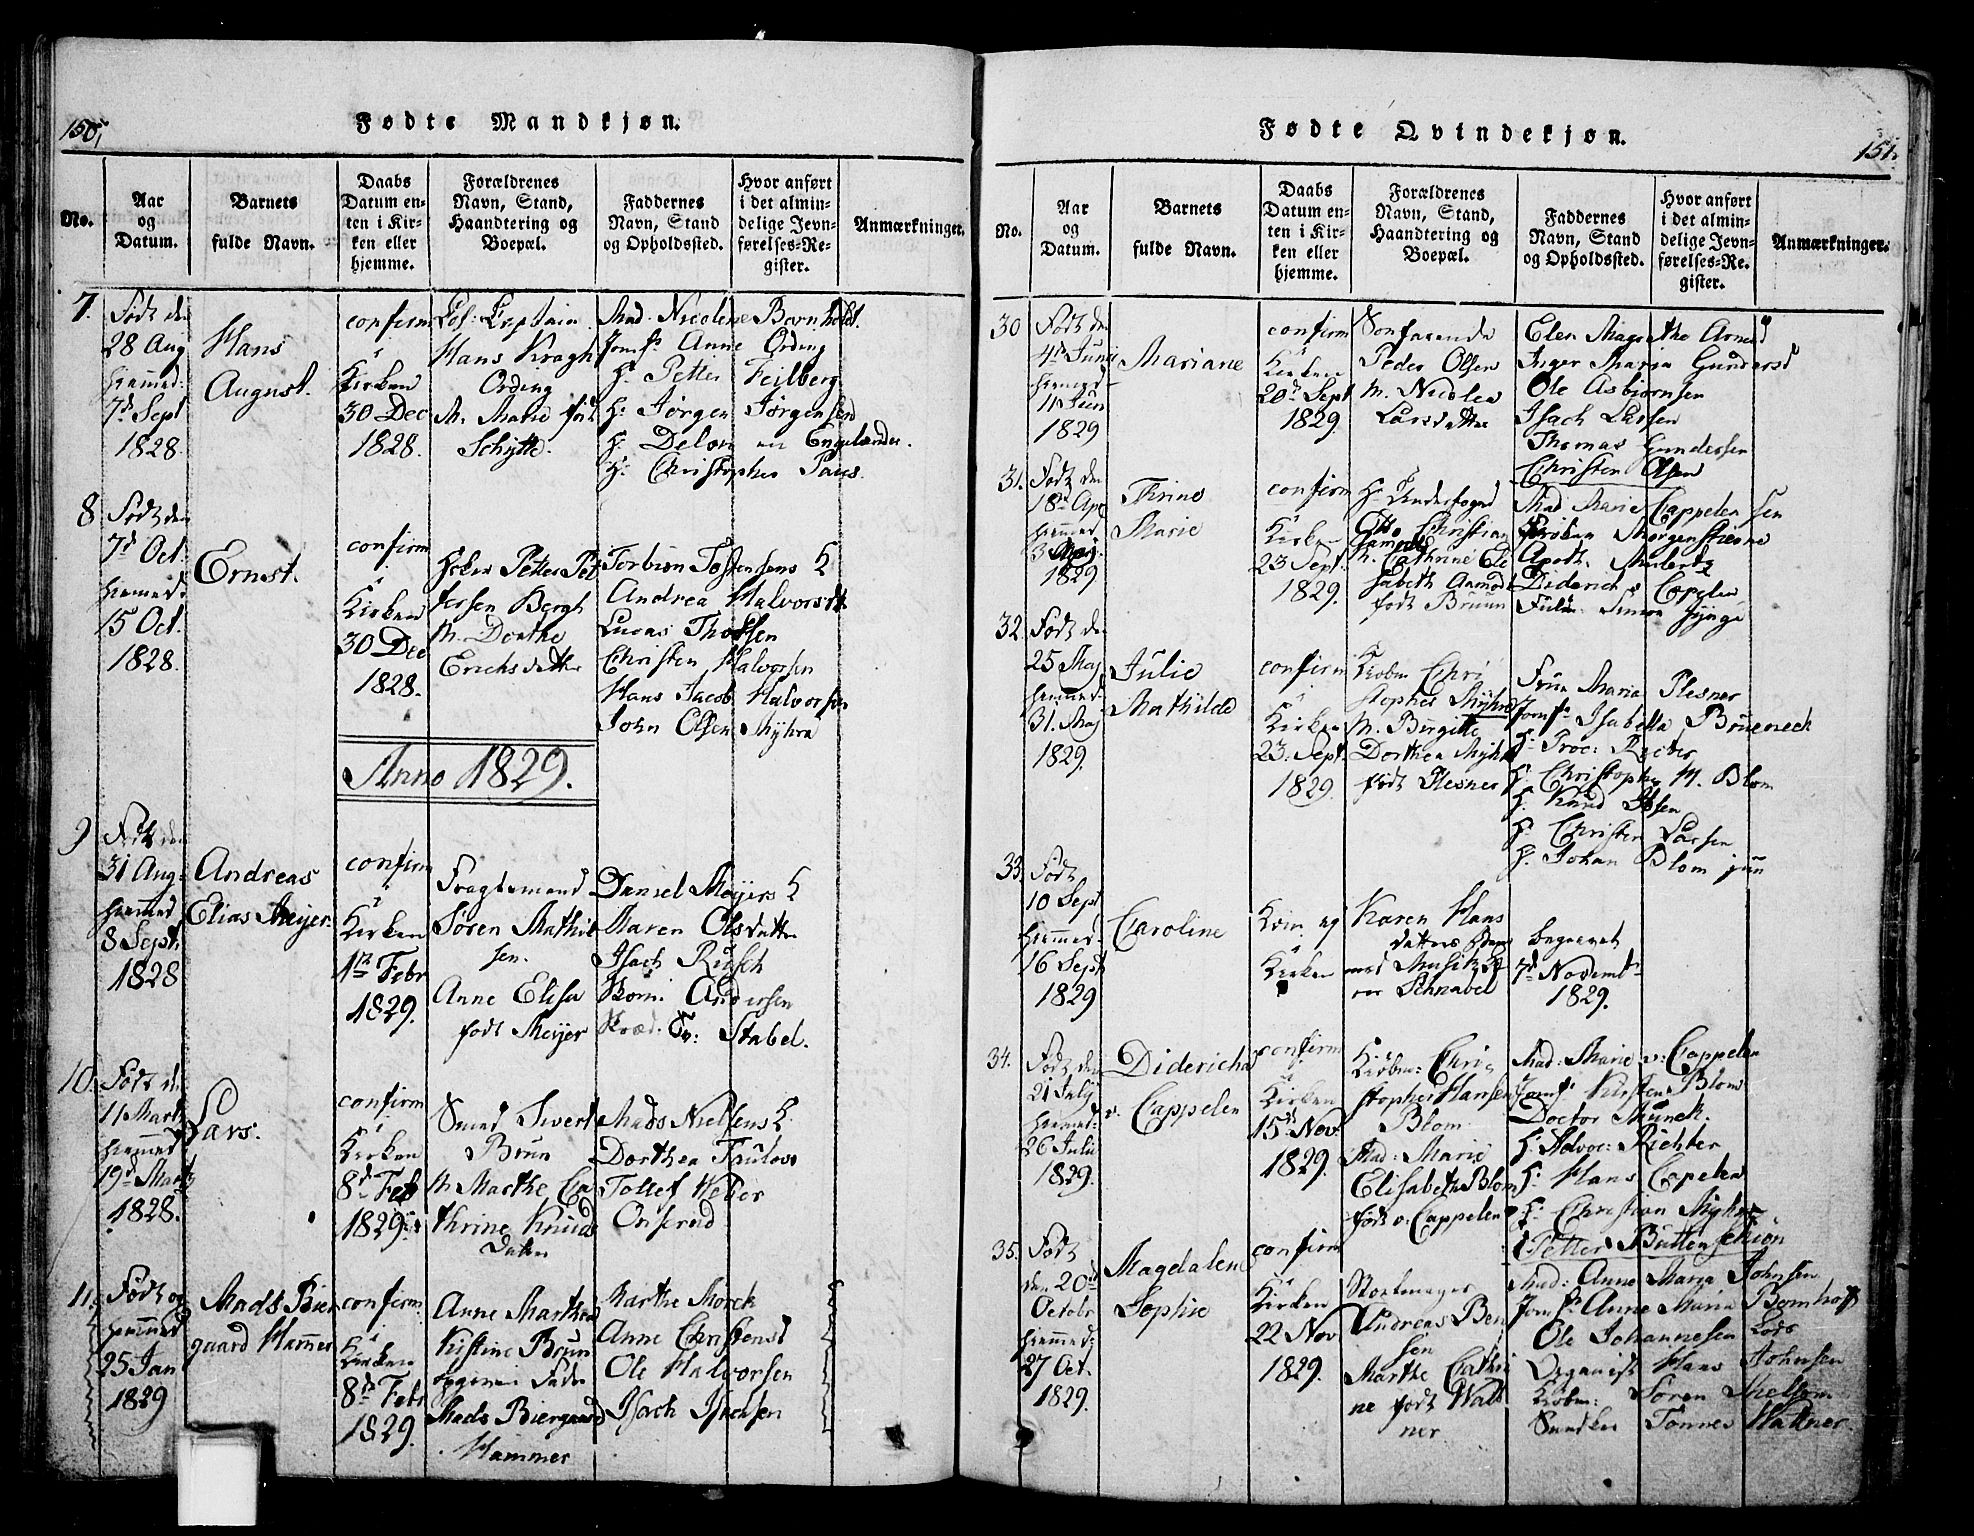 150,
Fødte Mandkjøn.
No.
Aar
og
Datum.
Barnets
fulde Navn.
Daabs
Datum en-
ten i Kir-
ken eller
hjemme.
Forældrenes
Navn, Stand,
Haandtering og
Boepæl.
Faddernes
Navn, Stand
og Opholdssted.
Hvor anført
i det almin-
delige Jevn-
førelses-Re-
gister.
Anmærkninger.
7.
Født den
28 Aug
hiemmed:
7d Sept
1828.
Hans
August.
confirm
i
Kirken
30 Dec
1828.
Captain
Hans Kragh
Ording
M. Marie født
Schytte.
Mad. Nicoline Bornholdt.
Jomf. Anne Ording
H. Petter Feilberg
H: Jørgen Jørgensen
H. en Engelænder.
H: Christopher Paus.
8
Født den
7d Oct
hiemmed:
15 Oct.
1828.
Ernst.
confirm
i
Kirken
30 Dec
1828.
Petter Pet
tersen Bergh
M. Dorthe
Erichsdatter
Torbiøn Tostensens
Andrea Halvorsdtr
Lucas
Christen Halvorsen
Hans Jacob Halvorsen
John Olsen Myhra
Anno 1829.
9
Født den
31 Aug:
hiemmed
8 Sept.
1828
Andreas
Elias Meijer.
confirm
i
Kirken
1ste Febr
1829.
Fragtemand
Søren Mathie
sen.
Anne Elisa
født Meijer
Daniel Meijers
Maren Olsdatter
Isach Rusch
Andersen
Stabel.
10.
Født d.
11 Marti
hiemmed
19d Marty
1828.
Lars.
confirm
i
Kirken
8d Feb
1829.
Smed Sivert
Brun
M. Marthe Ca
thrine Knuds
Datter
Mads Nielsens
Dorthea
Tollef
11.
Født og
hiemmed
25 Jan
1829
Mads Bier
gaard Hammer
confirm
i
Kirken
8de Febr
1829.
Anne Marthea
Kistine Brun
Fader
Mads Biergaard
Hammer
Marthe Morck
Anne Christensd
Ole Halvorsen
Isach Isachsen
151.
Fødte Qvindekjøn.
No.
Aar
og
Datum.
Barnets
fulde Navn.
Daabs
Datum en-
ten i Kir-
ken eller
hjemme.
Forældrenes
Navn, Stand,
Haandtering og
Boepæl.
Faddernes
Navn, Stand
og Opholdssted.
Hvor anført
i det almin-
delige Jevn-
førelses-Re-
gister.
Anmærkninger.
30
Født den
4de Juni
hiemmed
11 Jun
1829
Mariane
confirm
i
Kirken
20de Sept
1829.
Søefarende
Peder Olsen
M. Nicolea
Larsdatter
Elen Magrethe
Inger Maria Gundersd
Ole Asbiørnsen
Isach Larsen
Thomas Gundersen
Christen Olsen
31.
Født den
18de Apr
hiemmed
3 Maj
1829
Thrine
Marie
confirm
i
Kirken
23 Sept.
1829.
Hr. Underfoged
Otto Christian
M. Cathrine Eli
sabeth
født Bruun
Mad Marie Cappelen
Kirsten Morgenstierne
Apoth. Malente
Diderich Capelen
Simon
32.
Født den
25 Maj
hiemmed
31. Maj
1829.
Julie
Mathilde
confirm
i
Kirken
23. Sept.
1829.
Kiøbm Chri
stopher Myhre
M. Birgitte
Dorthea Myhre
født Plesner
Frue Maria Plesner
Jomf. Isabella Brueneck
H. Proc:
H. Christopher H. Blom
H. Knud Ibsen
H. Christen Larsen
H. Johan Blom jun
33.
Født
10 Sept
hiemmed
16 Sept
1829
Caroline
Caroline
i
Kirken
Karen Hans
datter
med
Schnabel
begravet
7d Novemb
1829.
34.
Født den
21 July
hiemmed:
26 Julii
1829.
Didericha
v. Cappelen
confirm
i
Kirken
15de Nov.
1829.
Kiøbm: Chri
stopher Hansen
Blom
Mad: Marie
Elisabeth Blom
født v. Cappelen
Mad: Marie v: Cappelen
Jomf Kirsten Blom
Doctor Munck.
H. Advoc: Richter
H. Hans Capelen
H. Christian Myhre
Petter Buttenschiøn
35.
Født
den 20de
Octobr
hiemmed:
27 Oct.
1829.
Magdalene
Sophie
confirm
i
Kirken
22 Nov
1829.
Andreas Ben
sen
Marthe Cathri
ne født Walt
ner
Mad: Anne Maria Johnsen
Jomf. Anne Maria Bomhoff
Ole Johannesen Lods
Organist Hans Johnsen
Kiøbm: Søren
Tønnes